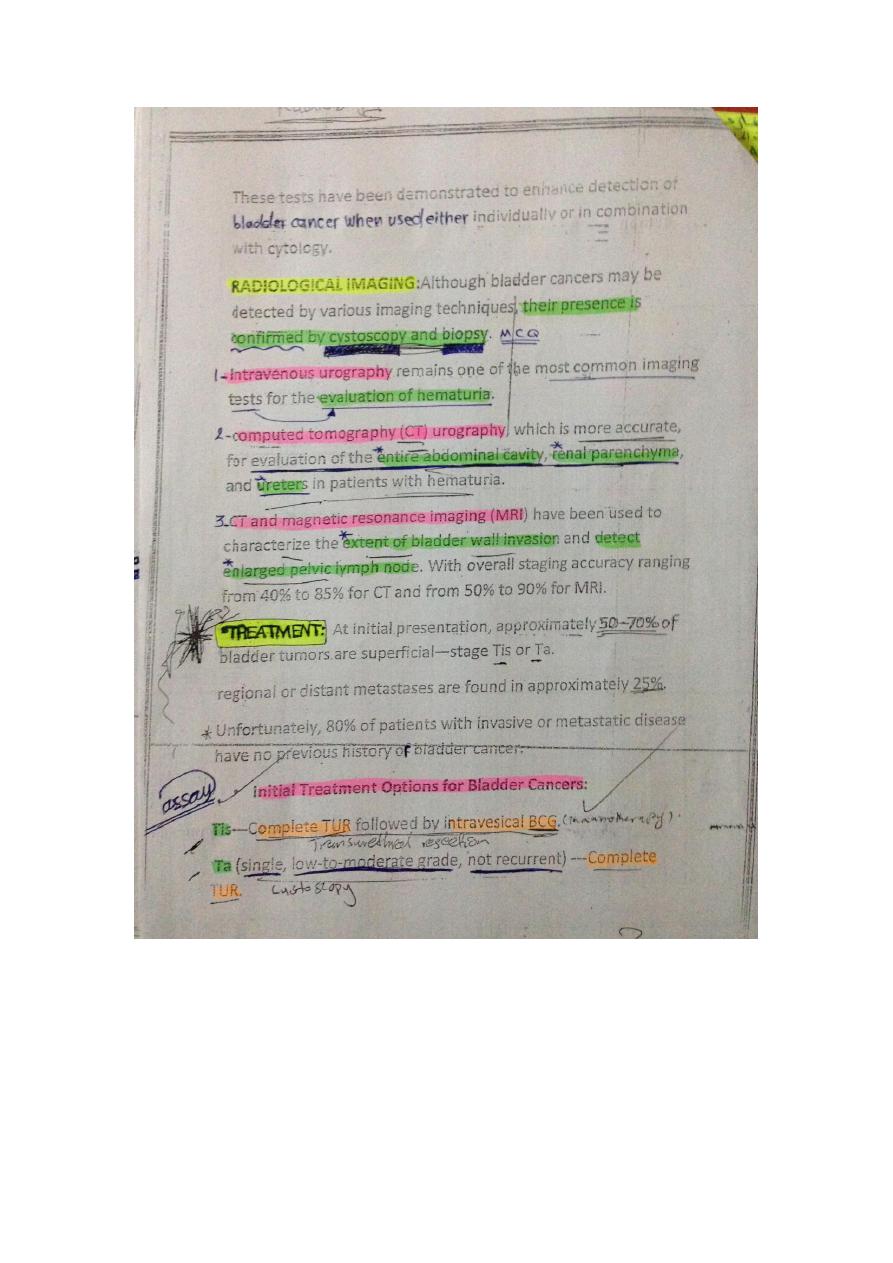 These tests have been demonstrated to enhance detection of
bladder cancer when used either individually or in combination
with cytology.
RADIOLOGICAL IMAGING:Although bladder cancers may be
detected by various imaging techniques, their presence is
confirmed by cystoscopy and biopsy. MCQ
1-Intravenous urography remains one of the most common imaging
tests for the evaluation of hematuria.
2-computed tomography (CT) urography, which is more accurate,
for evaluation of the *entire abdominal cavity, *renal parenchyma,
and *ureters in patients with hematuria.
3-CT and magnetic resonance imaging (MRI) have been used to
characterize the *extent of bladder wall invasion and detect
*enlarged pelvic lymph node. With overall staging accuracy ranging
from 40% to 85% for CT and from 50% to 90% for MRI.
TREATMENT: At initial presentation, approximately 50–70% of
bladder tumors are superficial—stage Tis or Ta.
regional or distant metastases are found in approximately 25%.
* Unfortunately, 80% of patients with invasive or metastatic disease
have no previous history of bladder cancer.
assay
Initial Treatment Options for Bladder Cancers:
Tis—Complete TUR followed by intravesical BCG. (Immunotherapy).
Transurethral resection
Ta (single, low-to-moderate grade, not recurrent) ---Complete
TUR.